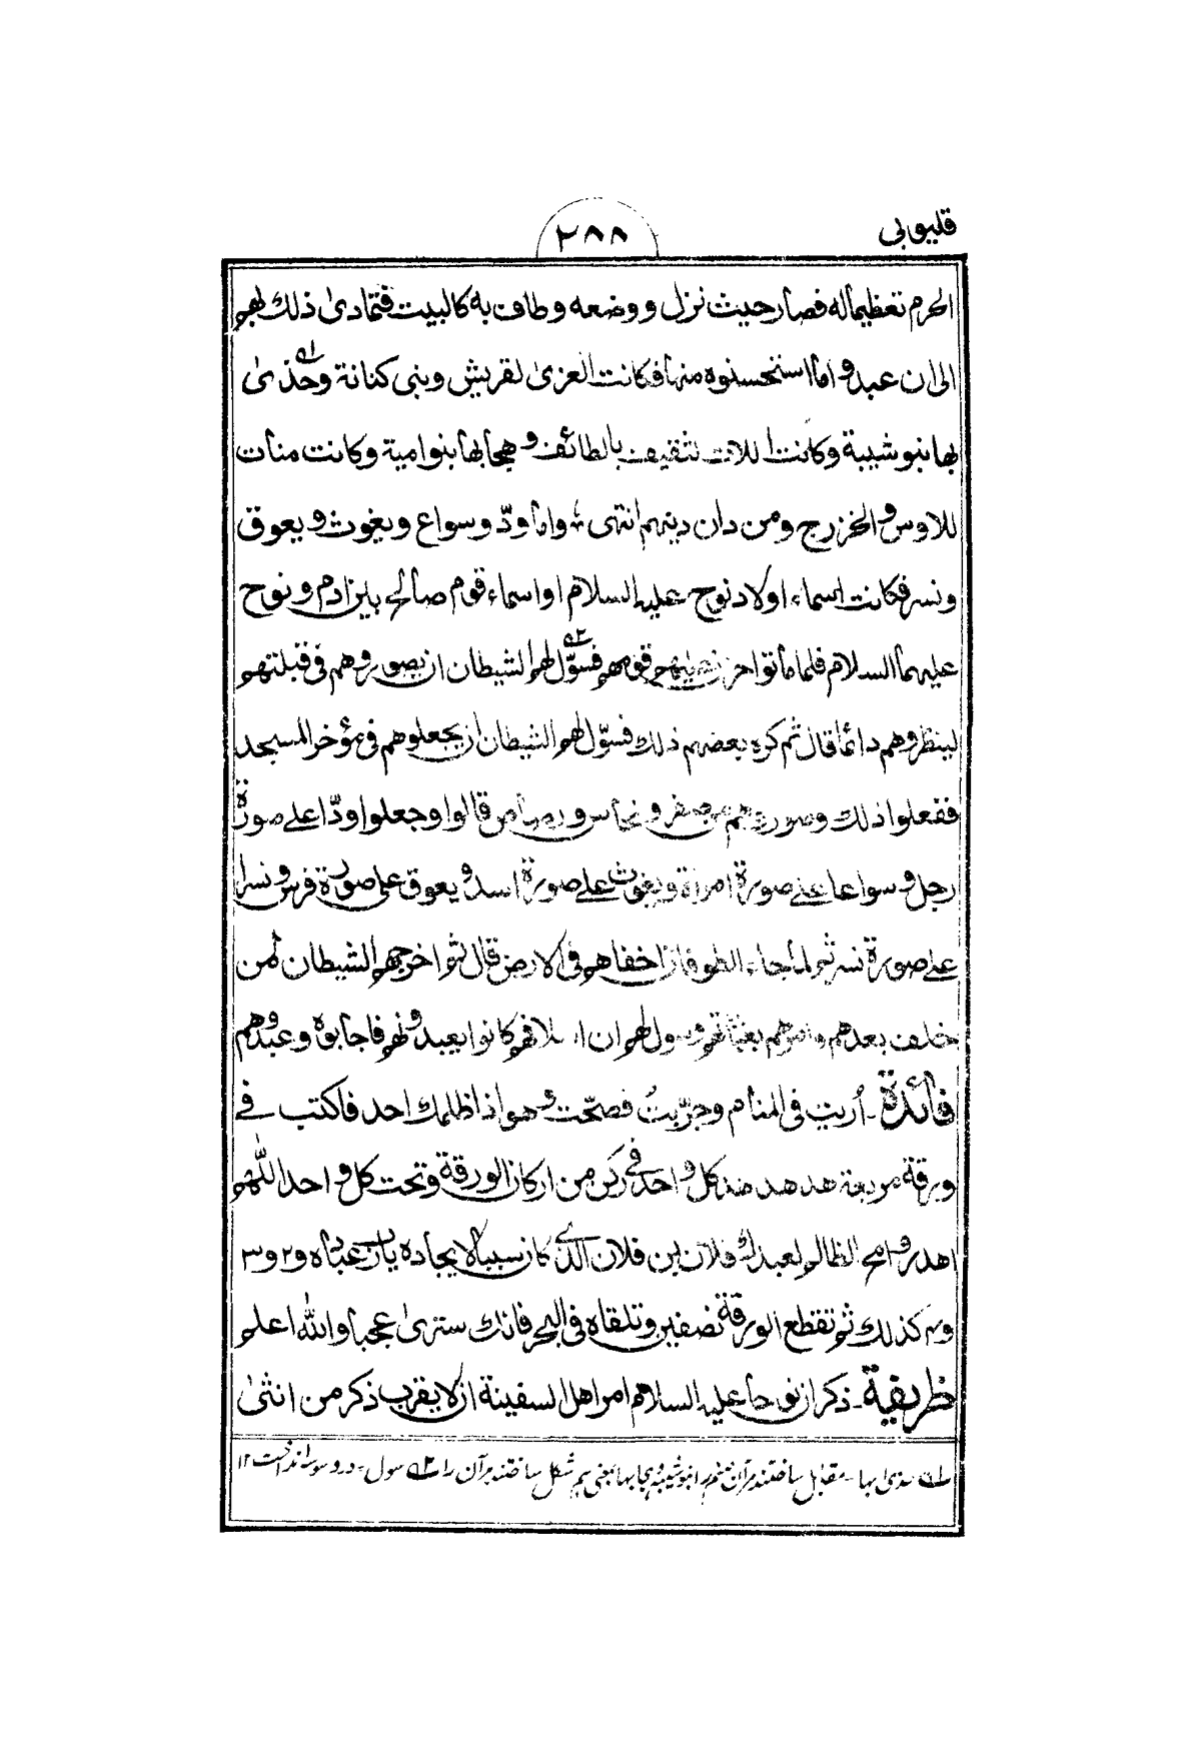 قليوبي
٢٨٨
الحرم تعظيما له فصار حيث نزل ووضعه وطاف به كالبيت فتمادى ذلك بهم
الى ان عبدوا ما استحسنوه منها فكانت العزى لقريش وبنى كنانة وحذى
بها بنو شيبة وكانت اللات لثقيف بالطائف وهجابها بنو امية وكانت منات
للاوس والخزرج ومن دان دينهم انتهى واما ودّ وسواع ويغوث ويعوق
ونسر فكانت اسماء اولاد نوح عليه السلام او اسماء قوم صالح بين ادم ونوح
عليهما السلام فلما ماتوا حزن عليهم قومهم فسوّل لهم الشيطان ان يصوروهم فى قبلتهم
لينظروهم دائما قال ثم كره بعضهم ذلك فسوّل لهم الشيطان ان يجعلوهم فى مؤخر المسجد
ففعلوا ذلك وصوروهم من صفر ونحاس ورصاص قالوا وجعلوا ودّا على صورة
رجل وسواعا على صورة امرأة ويغوث على صورة اسد ويعوق على صورة فرس ونسرا
على صورة نسر ثم لما جاء الطوفان اخفاهم فى الارض قال ثم اخرجهم الشيطان لمن
خلف بعدهم وامرهم بعبادتهم وسول لهم ان اسلافهم كانوا يعبدونهم فاجابوه وعبدوهم
فائدة۔ أريت فى المنام وجرّبتُ فصحّت وهو اذا ظلمك احد فاكتب فى
ورقة مربعة هد هد هد هد كل واحد فى ركن من اركان الورقة وتحت كل واحد اللهم
اهد وامح الظالم لعبدك فلان بن فلان الذى كان سببا لايجاده يا رب عباده و٢ و٣
و٤ كذلك ثم تقطع الورقة نصفين وتلقاه فى البحر فانك سترى عجبا والله اعلم
ظريفة۔ ذكر ان نوحا عليه السلام امر اهل السفينة ان لا يقرب ذكر من انثى
بها۔ مقابل ساختند برآن بنو شيبه هجابها يعنى هم شكل ساختند برآن را سول۔ در وسوسه انداخت ١٢